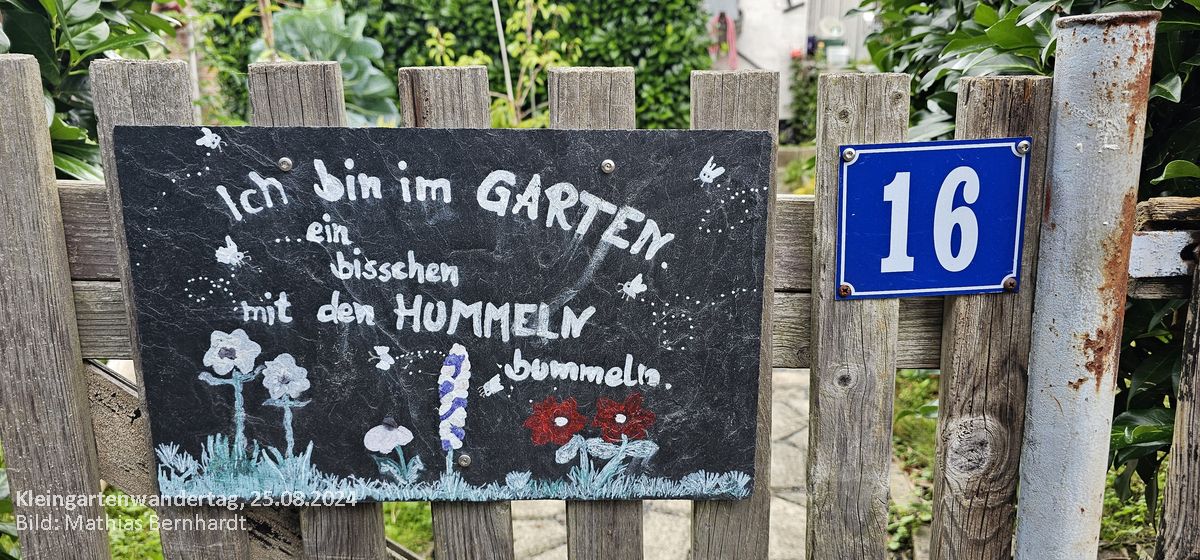 Ich bin im GARTEN.
...ein
bisschen
mit den HUMMELN
bummeln.
16
Kleingartenwandertag, 25.08.2024
Bild: Mathias Bernhardt